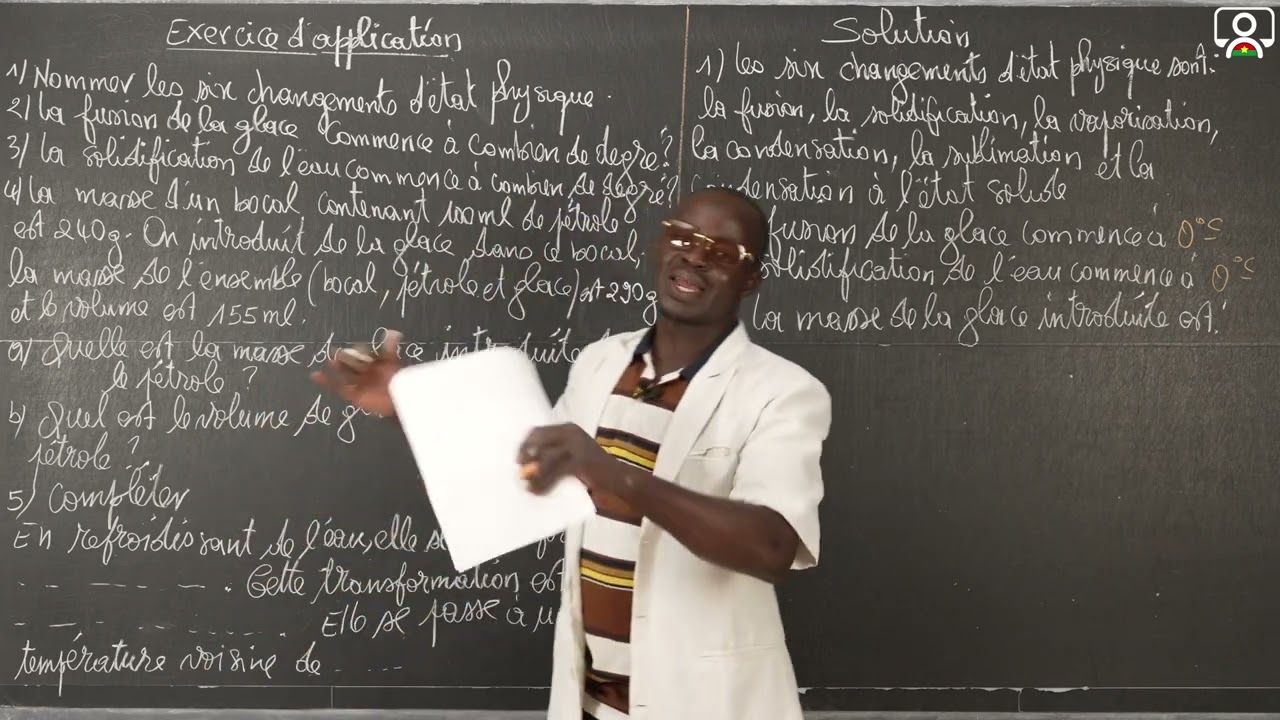 Exercice d'application
1) Nommer les six changements d'état physique.
2) La fusion de la glace commence à combien de degré?
3) La solidification de l'eau commence à combien de degré?
4) La masse d'un bocal contenant 100ml de pétrole
est 240g. On introduit de la glace dans ce bocal,
la masse de l'ensemble (bocal, pétrole et glace) est 290g
et le volume est 155ml.
a) Quelle est la masse de introduite
le pétrole ?
b) Quel est le volume de
pétrole ?
5) Compléter
En refroidissant de l'eau, elle se
_ _ _ _ . Cette transformation est
_ _ _ _ _ . Elle se passe à
température voisine de - - - -
Solution
1) Les six changements d'état physique sont:
la fusion, la solidification, la vaporisation,
la condensation, la sublimation et la
condensation à l'état solide
fusion de la glace commence à 0°C
solidification de l'eau commence à 0°C
La masse de la glace introduite est: